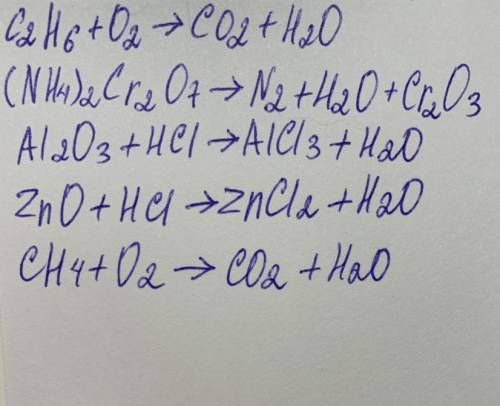 C2H6+O2→CO2+H2O
(NH4)2Cr2O7→N2+H2O+Cr2O3
Al2O3+HCl→AlCl3+H2O
ZnO+HCl→ZnCl2+H2O
CH4+O2→CO2+H2O